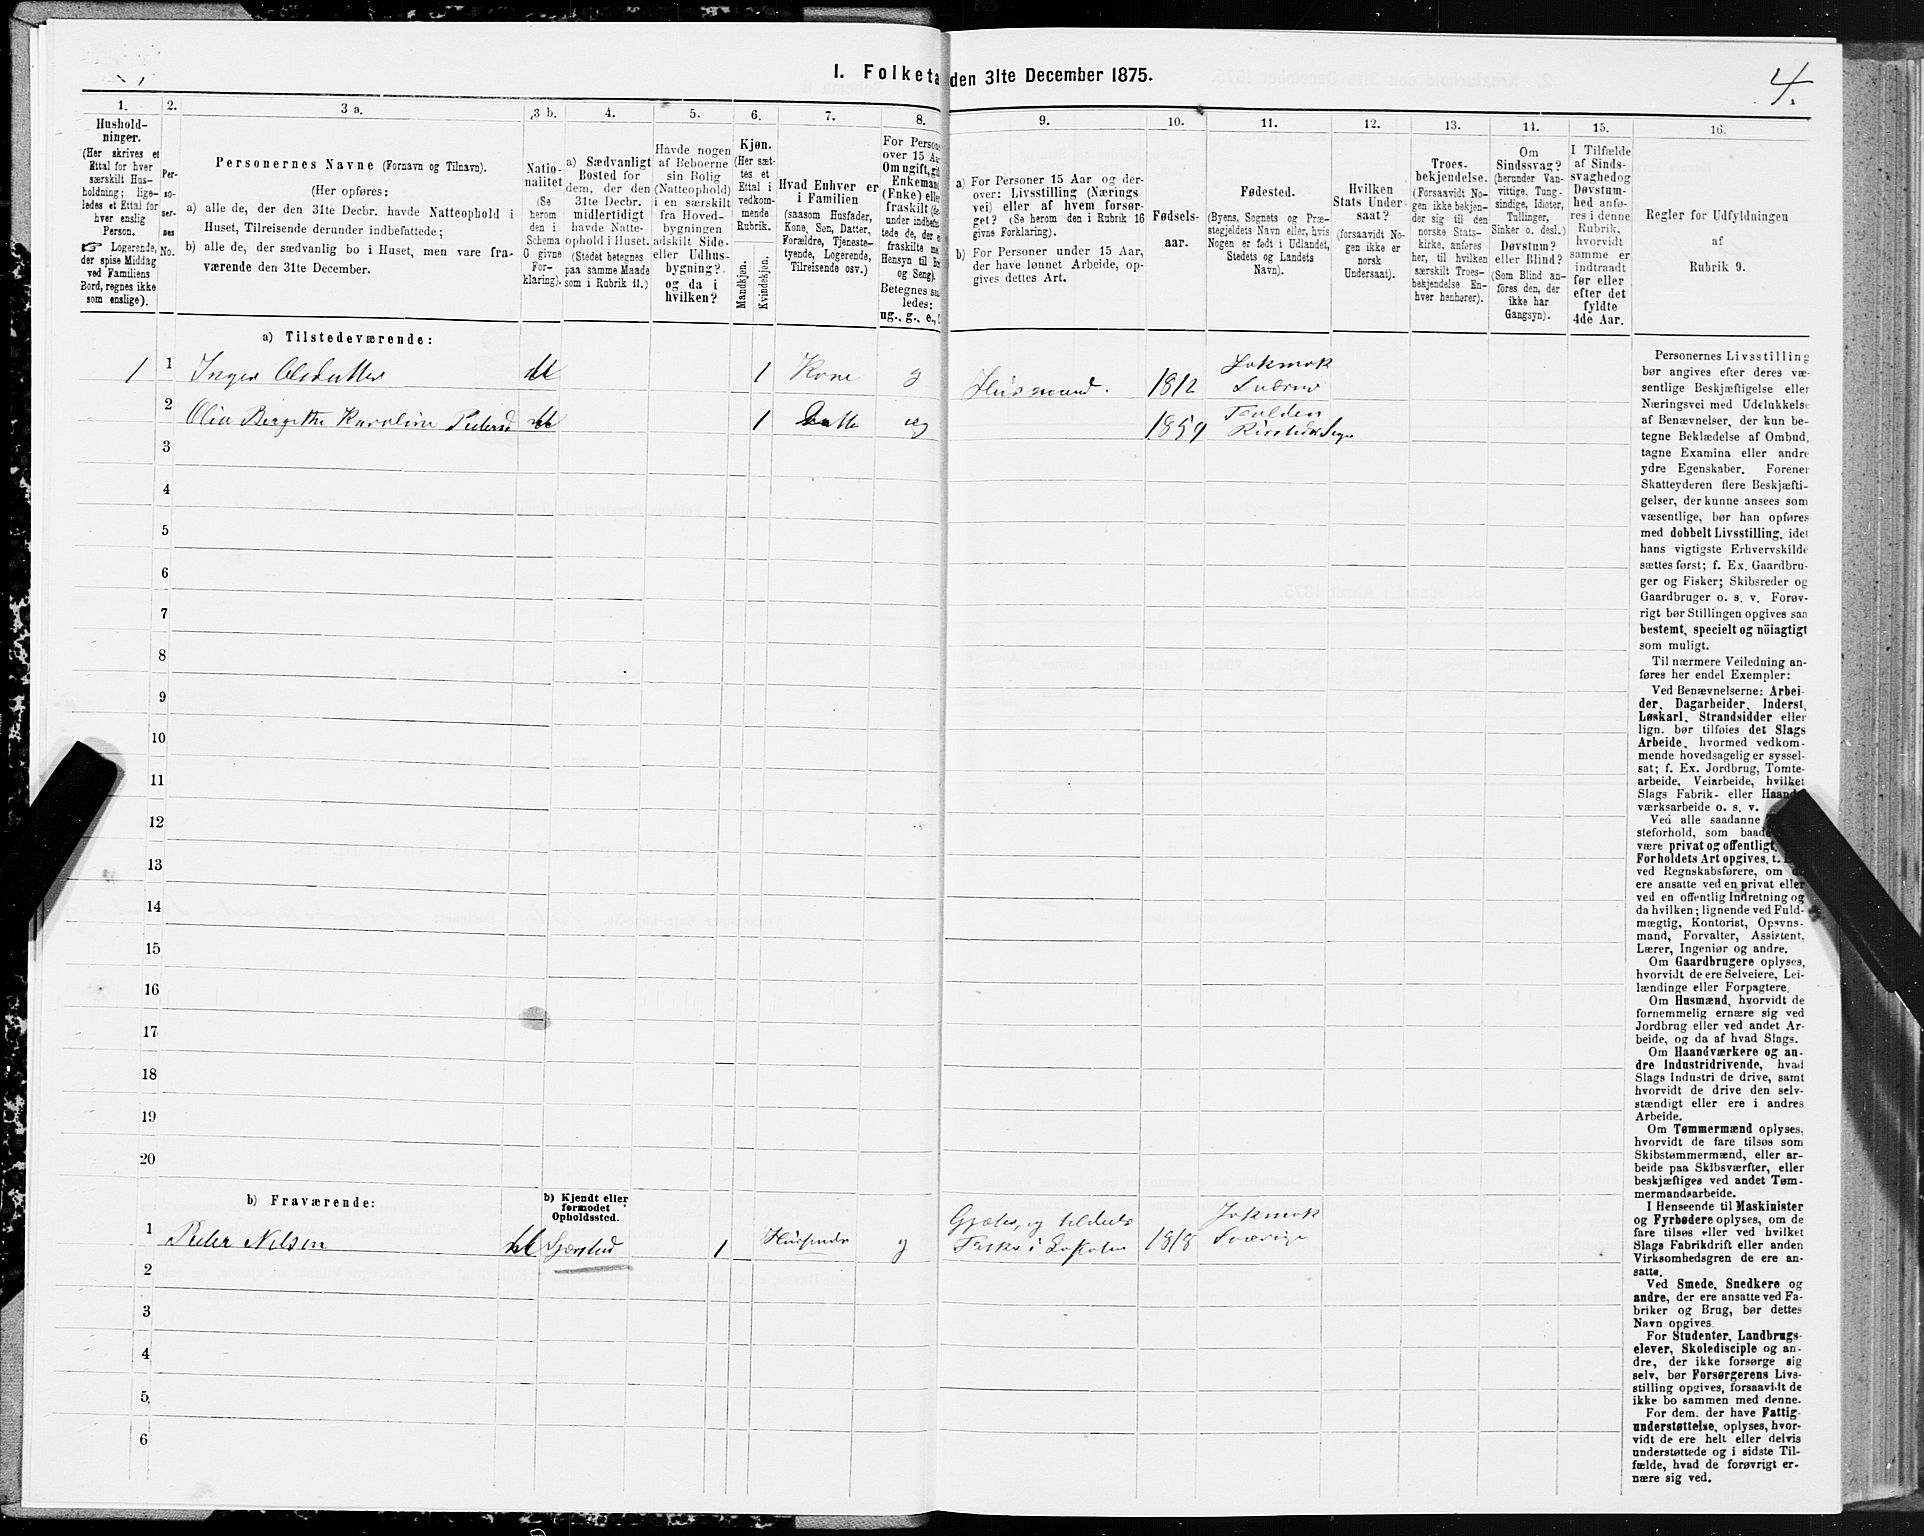 I. Folketa den 31te December 1875.
4.
1. 2. 3 a. 3 b. 4. 5. 6. 7. 8. 9. 10. 11. 12. 13. 14. 15. 16.
Hushold-
ninger.
(Her skrives et
Ettal for hver
særskilt Hus-
holdning; lige-
ledes et Ettal for
hver enslig
Person.
☞ Logerende,
der spise Middag
ved Familiens
Bord, regnes ikke
som enslige).
Per-
so-
ner-
nes
No.
Personernes Navne (Fornavn og Tilnavn).
(Her opføres:
a) alle de, der den 31te Decbr. havde Natteophold i
Huset, Tilreisende derunder indbefattede;
b) alle de, der sædvanlig bo i Huset, men vare fra-
værende den 31te December.
Natio-
nalitet
(Se
herom
den i
Schema
O givne
For-
klaring).
a) Sædvanligt
Bosted for
dem, der den
31te Decbr.
midlertidigt
havde Natte-
ophold i Huset.
(Stedet betegnes
paa samme Maade
som i Rubrik 11.)
Havde nogen
af Beboerne
sin Bolig
(Natteophold)
i en særskilt
fra Hoved-
bygningen
adskilt Side-
eller Udhus-
bygning?
og da i
hvilken?
Kjøn.
(Her sæt-
tes et
Ettal i
vedkom-
mende
Rubrik.
Mandkjøn.
Kvindekjøn.
Hvad Enhver er
i Familien
(saasom Husfader,
Kone, Søn, Datter,
Forældre, Tjeneste-
tyende, Logerende,
Tilreisende osv.)
For Persone
over 15 Aa
Om ugift, gif
Enkemand
(Enke) elle
fraskilt
under indbefat-
tede de, der e
fraskilte me
Hensyn til Bo
og Seng).
Betegnes saa
ledes:
ug., g., e.,
a) For Personer 15 Aar og der-
over: Livsstilling (Nærings
vei) eller af hvem forsør-
get? (Se herom den i Rubrik 16
givne Forklaring).
b) For Personer under 15 Aar,
der have lønnet Arbeide, op-
gives dettes Art.
Fødsels-
aar.
Fødested.
(Byens, Sognets og Præ-
stegjeldets Navn eller, hvis
Nogen er født i Udlandet,
Stedets og Landets
Navn).
Hvilken
Stats Under-
saat?
(forsaavidt No-
gen ikke er
norsk
Undersaat).
Troes-
bekjendelse.
(Forsaavidt No-
gen ikke bekjen-
der sig til den
norske Stats-
kirke, anføres
her, til hvilken
særskilt Troes-
bekjendelse En-
hver henhører).
Om
Sindssvag?
(herunder Van-
vittige, Tung-
sindige, Idioter,
Tullinger,
Sinker o. desl.)
Døvstum?
eller Blind?
(Som Blind an-
føres den, der
ikke har
Gangsyn).
I Tilfælde
af Sinds-
svaghed og
Døvstum-
hed anfø-
res i denne
Rubrik,
hvorvidt
samme er
indtraadt
før eller
efter det
fyldte
4de Aar.
Regler for Udfyldningen
af
Rubrik 9.
a) Tilstedeværende:
1 1 Inger Olsdatter 1 Kone g Husmand. 1812 Jokmok
2 Olia Bergitte Karoline Peders 1 Datte ug 1859
3
4
5
6
7
8
9
10
11
12
13
14
15
16
17
18
19
20
b) Fraværende:
b) Kjendt eller
formodet
Opholdssted.
1 Peder Nilsen 1 g 1818 Jokmok
Sværige
2
3
4
5
6
Personernes Livsstilling
bør angives efter deres væ-
sentlige Beskjæftigelse eller
Næringsvei med Udelukkelse
af Benævnelser, der kun be-
tegne Beklædelse af Ombud,
tagne Examina eller andre
ydre Egenskaber. Forener
Skatteyderen flere Beskjæfti-
gelser, der kunne ansees som
væsentlige, bør han opføres
med dobbelt Livsstilling, idet
hans vigtigste Erhvervskilde
sættes først; f. Ex. Gaardbru-
ger og Fisker; Skibsreder og
Gaardbruger o. s. v. Forøv-
rigt bør Stillingen opgives saa
bestemt, specielt og nöiagtigt
som muligt.
Til nærmere Veiledning an-
føres her endel Exempler:
Ved Benævnelserne: Arbei-
der, Dagarbeider, Inderst,
Løskarl, Strandsidder eller
lign. bør tilføies det Slags
Arbeide, hvormed vedkom-
mende hovedsagelig er syssel-
sat; f. Ex. Jordbrug, Tomte-
arbeide, Veiarbeide, hvilket
Slags Fabrik- eller Haand-
værksarbeide o. s. v.
Ved alle saadanne
steforhold, som baade
være privat og offentligt,
Forholdets Art opgives, t.
ved Regnskabsførere, om de
ere ansatte ved en privat eller
ved en offentlig Indretning og
da hvilken; lignende ved Fuld-
mægtig, Kontorist, Opsyns-
mand, Forvalter, Assistent,
Lærer, Ingeniør og andre.
Om Gaardbrugere oplyses,
hvorvidt de ere Selveiere, Lei-
lændinge eller Forpagtere.
Om Husmænd, hvorvidt de
fornemmelig ernære sig ved
Jordbrug eller ved andet Ar-
beide, og da af hvad Slags.
Om Haandværkere og an-
dre Industridrivende, hvad
Slags Industri de drive, samt
hvorvidt de drive den selv-
stændigt eller ere i andres
Arbeide.
Om Tømmermænd oplyses,
hvorvidt de fare tilsøs som
Skibstømmermænd, eller ar-
beide paa Skibsværfter, eller
beskjæftiges ved andet Tøm-
mermandsarbeide.
I Henseende til Maskinister
og Fyrbødere oplyses, om de
fare tilsøs eller ved hvilket
Slags Fabrikdrift eller anden
Virksomhedsgren de ere an-
satte.
Ved Smede, Snedkere og
andre, der ere ansatte ved Fa-
briker og Brug, bør dettes
Navn opgives.
For Studenter, Landbrugs-
elever, Skoledisciple og an-
dre, der ikke forsørge sig
selv, bør Forsørgerens Livs-
stilling opgives, forsaavidt de
ikke bo sammen med denne.
For dem, der have Fattig-
understøttelse, oplyses, hvor-
vidt de ere helt eller delvis
understøttede og i sidste Til-
fælde, hvad de forøvrigt er-
nære sig ved.